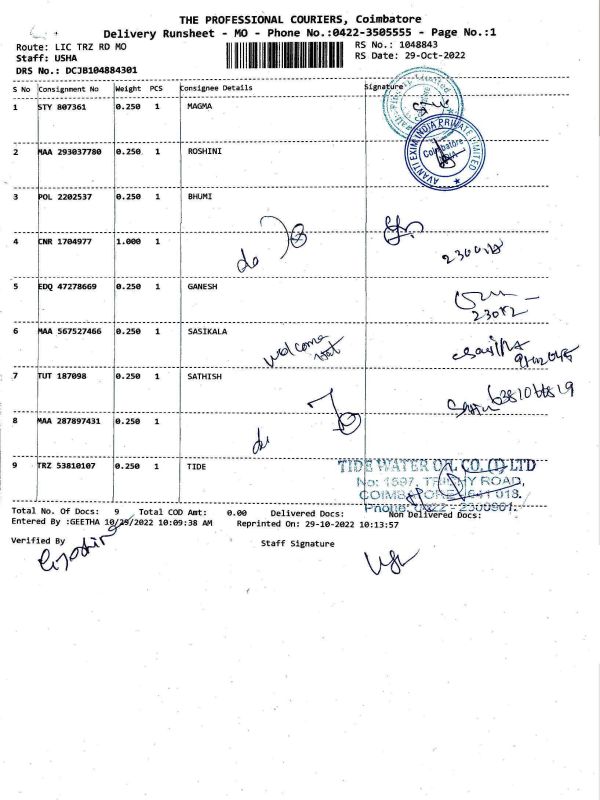 THE PROFESSIONAL COURIERS, Coimbatore
Delivery Runsheet - MO - Phone No.:0422-3505555 - Page No.:1
Route: LIC TRZ RD MO
RS No.: 1048843
Staff: USHA
RS Date: 29-Oct-2022
DRS No.: DCJB104884301
S No Consignment No Weight PCS Consignee Details Signature
1 STY 807361 0.250 1 MAGMA
2 MAA 293037780 0.250 1 ROSHINI
AVANTI EXIM INDIA PRIVATE LIMITED
Coimbatore
3 POL 2202537 0.250 1 BHUMI
4 CNR 1704977 1.000 1
do
5 EDQ 47278669 0.250 1 GANESH
6 MAA 567527466 0.250 1 SASIKALA
welcome
7 TUT 187098 0.250 1 SATHISH
8 MAA 287897431 0.250 1
do
9 TRZ 53810107 0.250 1 TIDE
TIDE WATER OIL CO. (I) LTD
No: 1597, TRICHY ROAD,
COIMBATORE - 641 018.
Phone: 0422 - 2300901.
Total No. Of Docs: 9 Total COD Amt: 0.00 Delivered Docs: Non Delivered Docs:
Entered By :GEETHA 10/29/2022 10:09:38 AM Reprinted On: 29-10-2022 10:13:57
Verified By Staff Signature